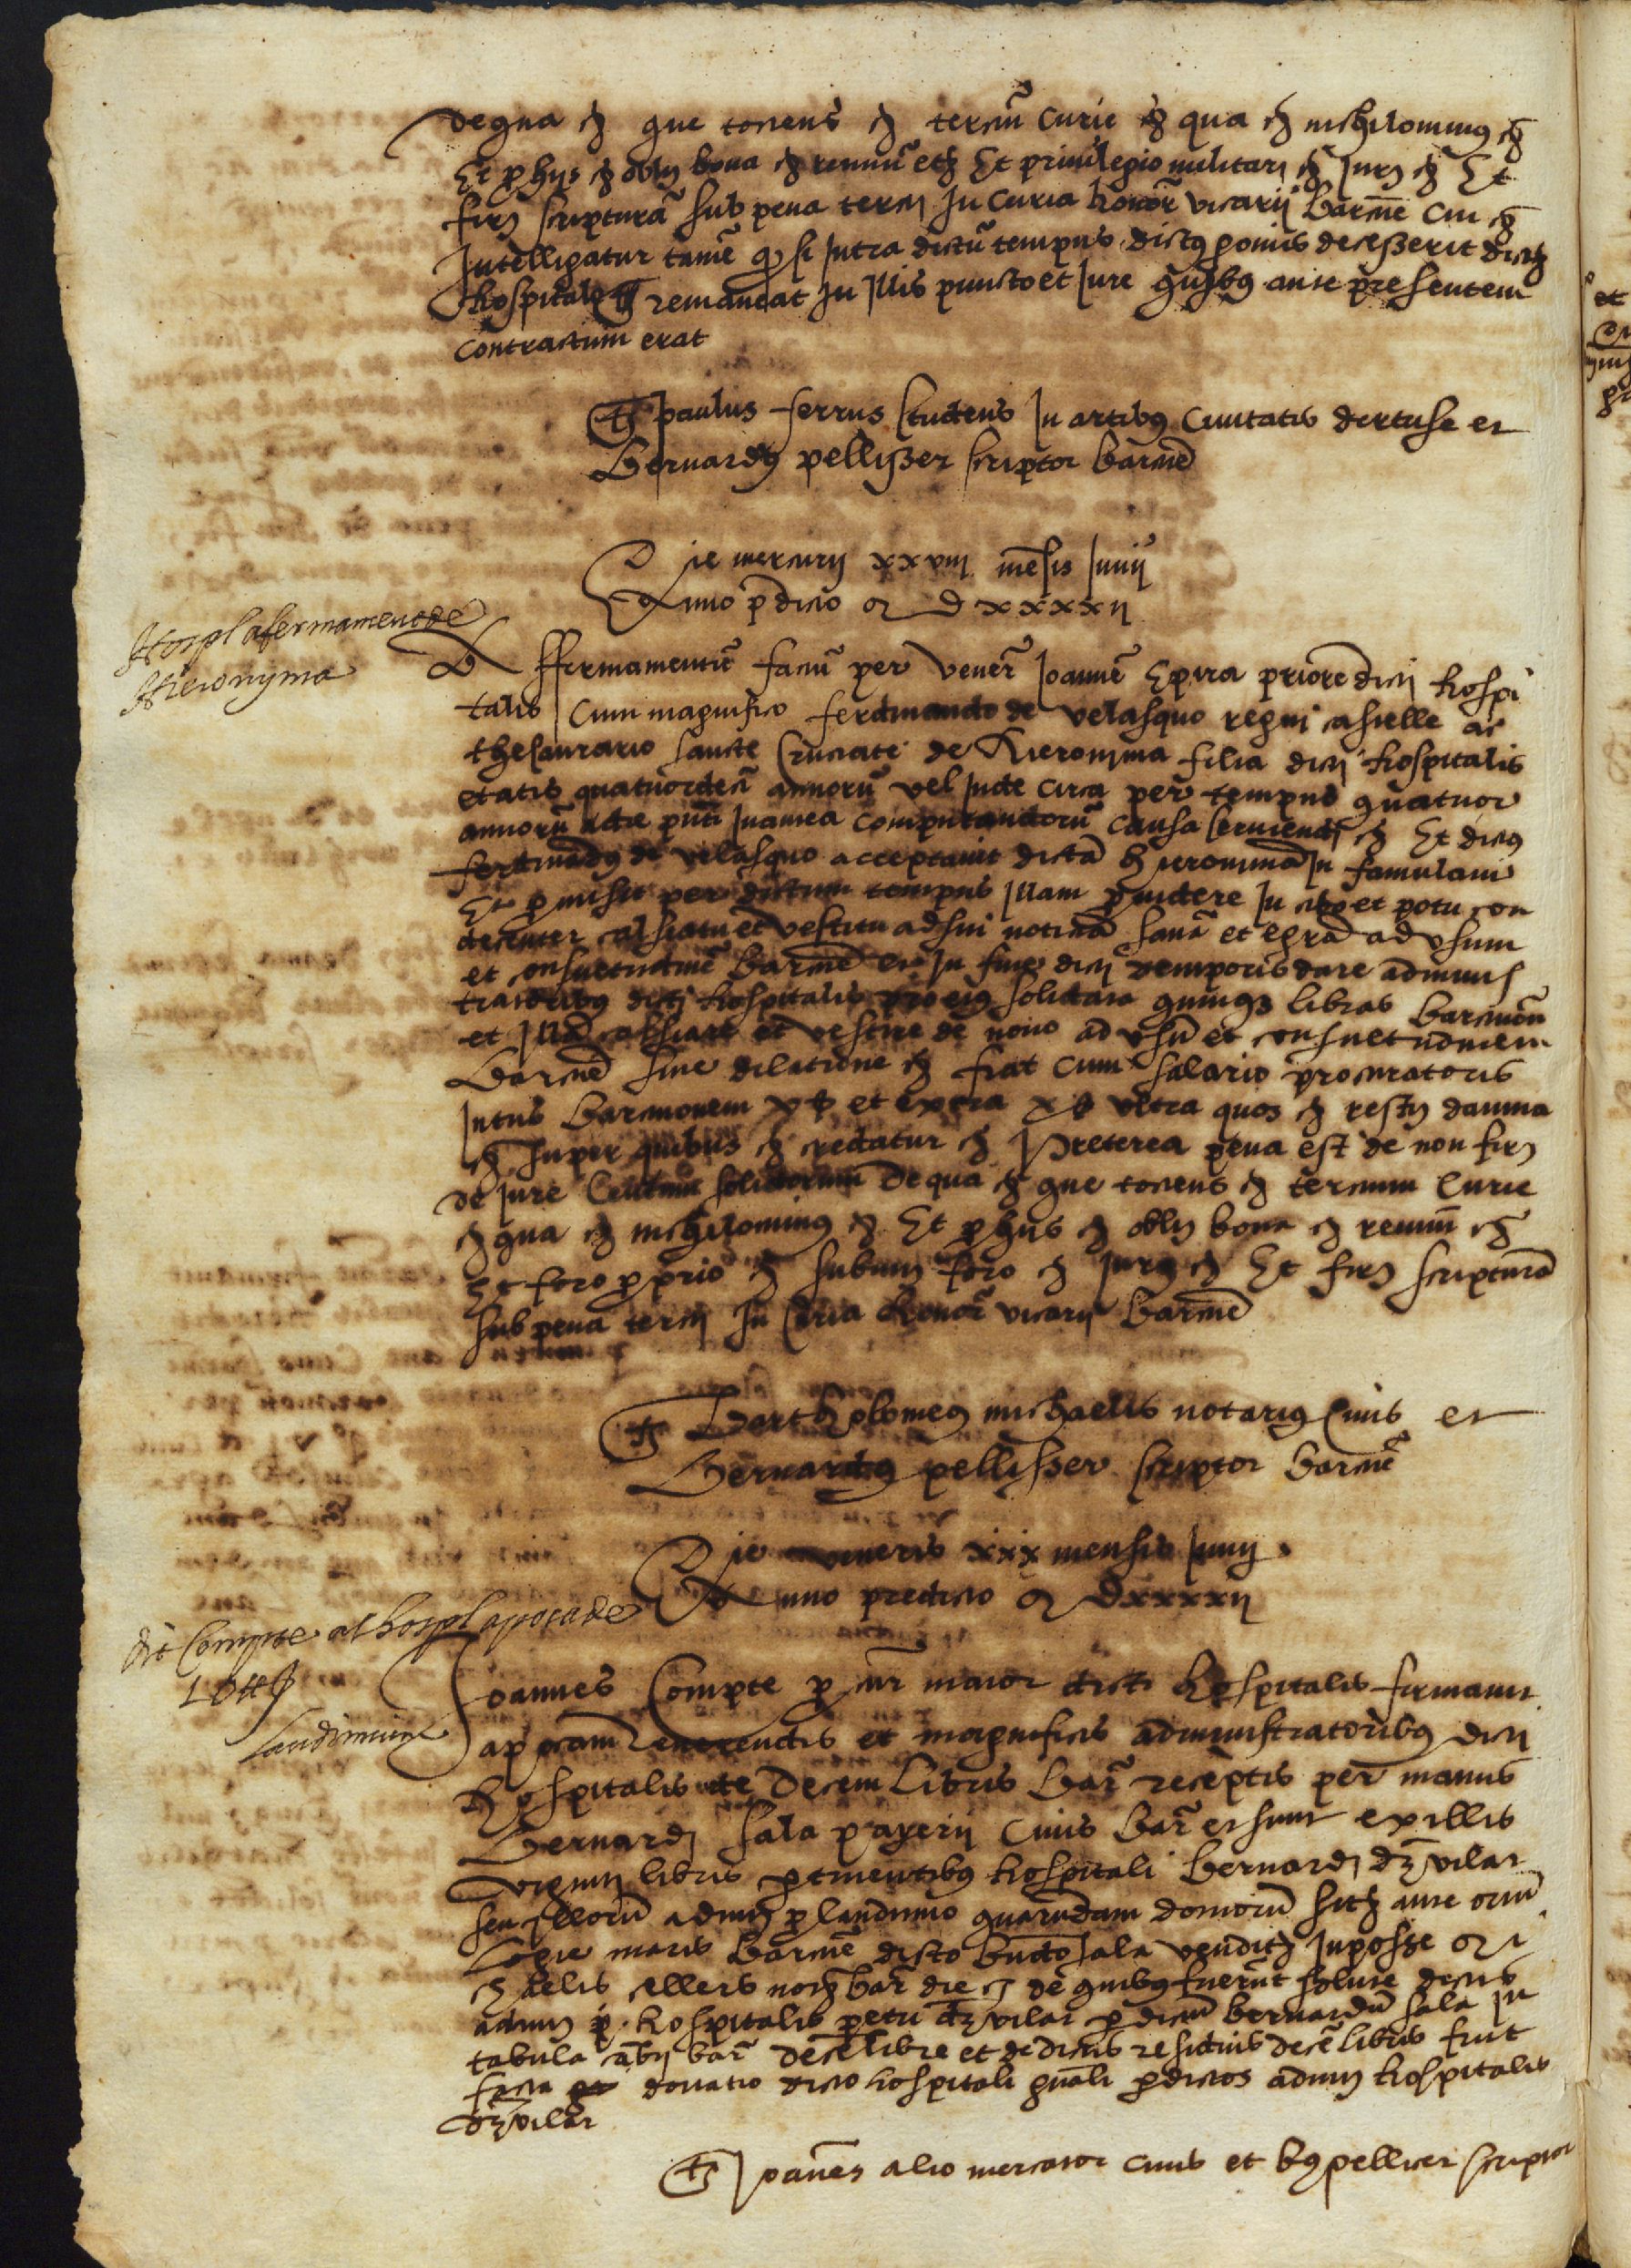 de qua etc que tociens etc terciu curie etc qua etc nichilominus etc
Et p hijs etc oblig bona etc renun etc Et privilegio militari etc Jur etc Et
firm scriptura sub pena tercij In Curia honor vicarij barcne cui etc
Intelligatur tame q si intra dictu tempus dictus decesserit dictu
hospitale remaneat In illis puncto et Jure quibus ante presentem
contractum erat
Ts paulus ferrus studens In artibus Civitatis dertuse et
Bernardus pellisser scriptor barcne
Die mercurij xxviij mesis Junij
Anno pdicto M D xxxxij
Hospl afermament de
Hieronyma
Affermamentu factu per vener Joanne Spira priore dicti hospi
talis Cum magnifico ferdinando de velasquo regni castelle ac
thesaurario sancte Cruciate de Hieronyma filia dicti hospitalis
etatis quatuordeci annoru vel inde circa per tempus quatuor
annoru a die pnti In antea computandoru causa serviendi etc Et dictus
ferdinadus de velasquo acceptavit dicta hieronima In famulam
Et pmisit per dictum tempus illam pvidere In cibo et potu con
decenter calsiatu et vestitu ad sui noticia sana et egra ad usum
et consuetudine barcne et In fine dicti temporis dare adminis
tratoribus dicti hospitalis pro eius solidata quinque libras barcinon
et illa calsiare et vestire de novo ad usu et consuetudinem
Barcne sine dilatione etc fiat cum salario procuratoris
Intus Barcinonem v s et extra x s ultra quos etc resty damna
etc super quibus etc credatur etc Preterea pena est de non firm
de Jure Centum solidorum de qua etc que tociens etc tercium Curie
etc qua etc nichilominus etc Et p hijs etc oblig bona etc renun etc
Et foro pprio etc submit foro etc Jur etc Et firm scriptura
sub pena tercij In Curia honor vicarij Barcne
Ts Bartholomeus michaelis notarius Civis et
Bernardus pellisser scriptor barcne
Die veneris xxx mensis Junij
Anno predicto M dxxxxij
Compte al hospl apoca de
10 ll
laudimini
Joannes Compte pcur maior dicti hospitalis firmavit
apocam Reverendis et magnificis administratoribus dicti
Hospitalis de Decem libris bar receptis per manus
Bernardi sala payerij Civis bar et sunt ex illis
viginti libris ptinentibus hospitali Bernardi dez vilar
seu illoru admis p laudimio quarudam domoru sitis ante
Logie maris Barcne dicto bndo sala venditis In posse
etc cellers not bar die etc de quibus fuerut solute dictis
admis hospitalis dez vilar p dictu bernardu sala In
tabula cabij bar dece libre et de dictis residuis dece libris fuit
facta donatio dicto hospitali gnali p dictos admis hospitalis
dez vilar
Ts Joanes alio mercator civis et bus pellicer scriptor